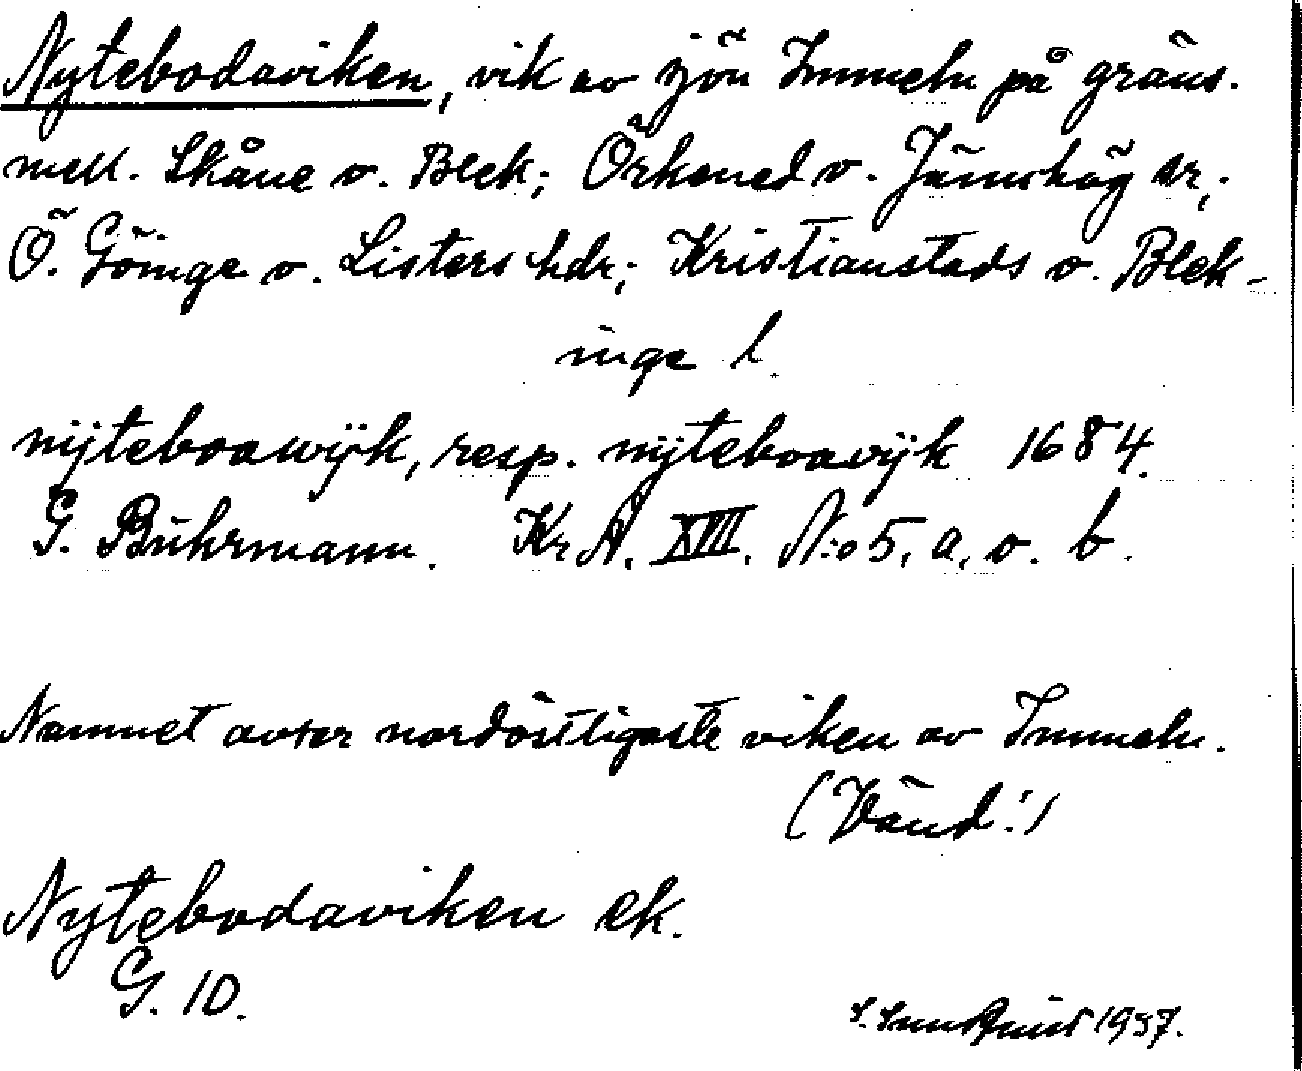 Nytebodaviken, vik av sjön Immeln på gräns.
mell. Skåne o. Blek; Örkened o. Jämshög sr;
Ö. Göinge o. Listers hdr; Kristianstads o. Blek-
inge l.
nijteboawijk, resp. nijteboavijk 1684.
G. Buhrmann. Kr A. XVII. N:o 5, a, o. b.
Namnet avser nordöstligaste viken av Immeln.
(Vänd!)
Nytebodaviken ek.
G. 10.
1937.